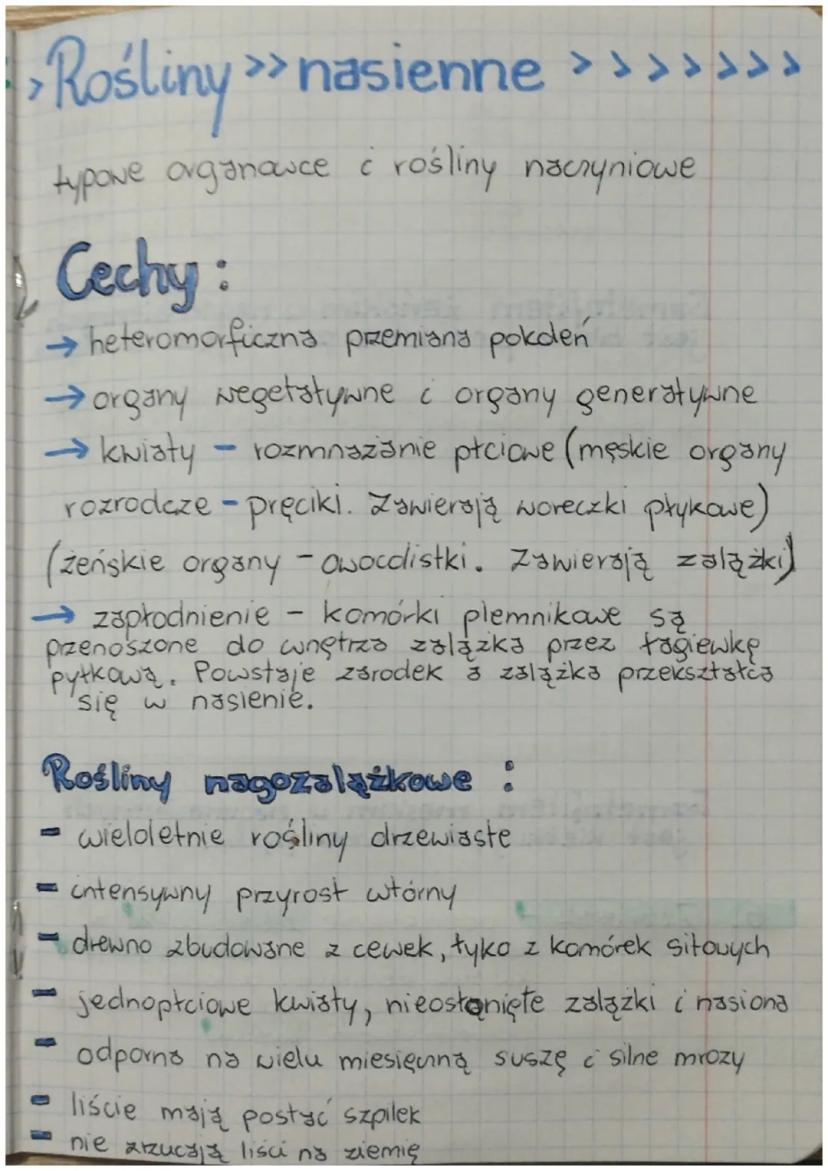 > Rośliny >> nasienne > > > > > > >
typowe organowce i rośliny naczyniowe
Cechy :
→ heteromorficzna przemiana pokoleń
→ organy wegetatywne i organy generatywne
→ kwiaty - rozmnażanie płciowe (męskie organy
rozrodcze - pręciki. Zawierają woreczki pyłkowe)
(żeńskie organy - owocolistki. Zawierają zalążki)
→ zapłodnienie - komórki plemnikowe są
przenoszone do wnętrza zalążka przez łagiewkę
pyłkową. Powstaje zarodek a zalążka przekształca
się w nasienie.
Rośliny nagozalążkowe :
- wieloletnie rośliny drzewiaste
- intensywny przyrost wtórny
- drewno zbudowane z cewek, łyko z komórek sitowych
- jednopłciowe kwiaty, nieosłonięte zalążki i nasiona
- odporna na wielu miesięczną suszę i silne mrozy
- liście mają postać szpilek
- nie zrzucają liści na ziemię